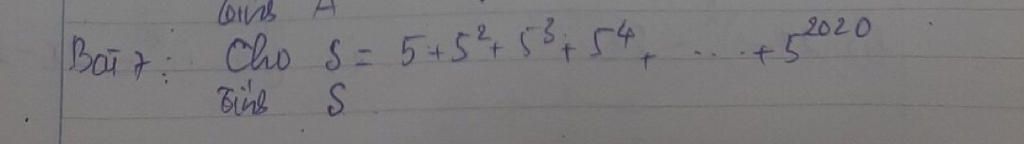 tính A
Bài 7: Cho S = 5 + 5² + 5³ + 5⁴ + ... + 5²⁰²⁰
tính S